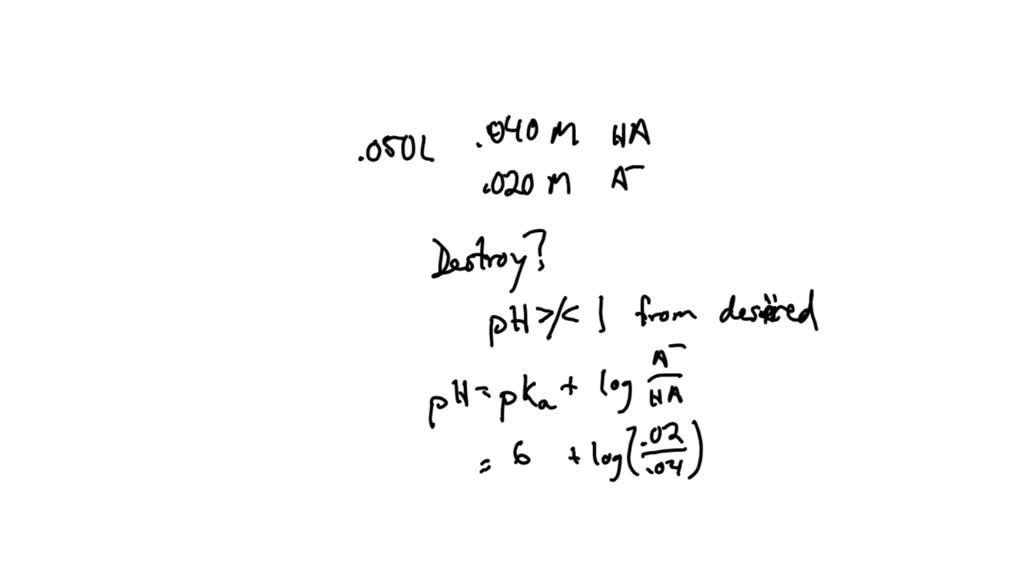 .050L .040 M HA
.020 M A⁻
Destroy?
pH >/< 1 from desired
pH = pKa + log A⁻/HA
= 6 + log(.02/.04)